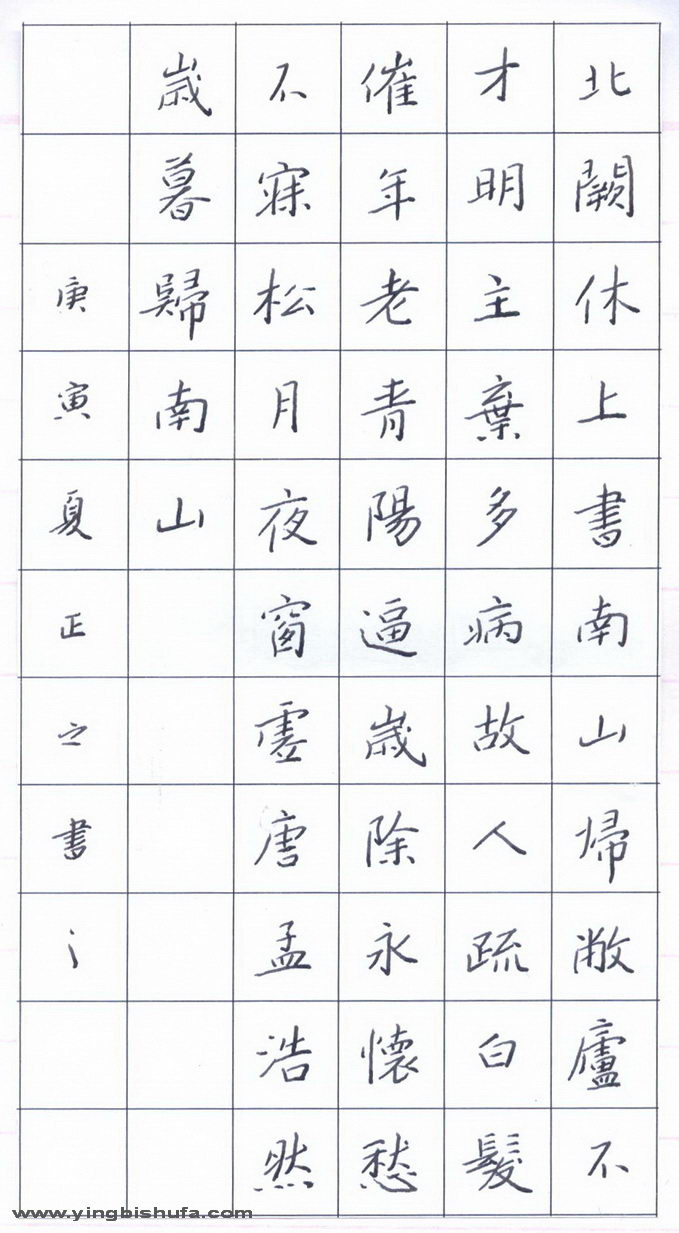 北闕休上書南山帰敝廬不
才明主棄多病故人疏白髮
催年老青陽逼歲除永懷愁
不寐松月夜窗虛唐孟浩然
歲暮歸南山
庚寅夏正之書
www.yingbishufa.com